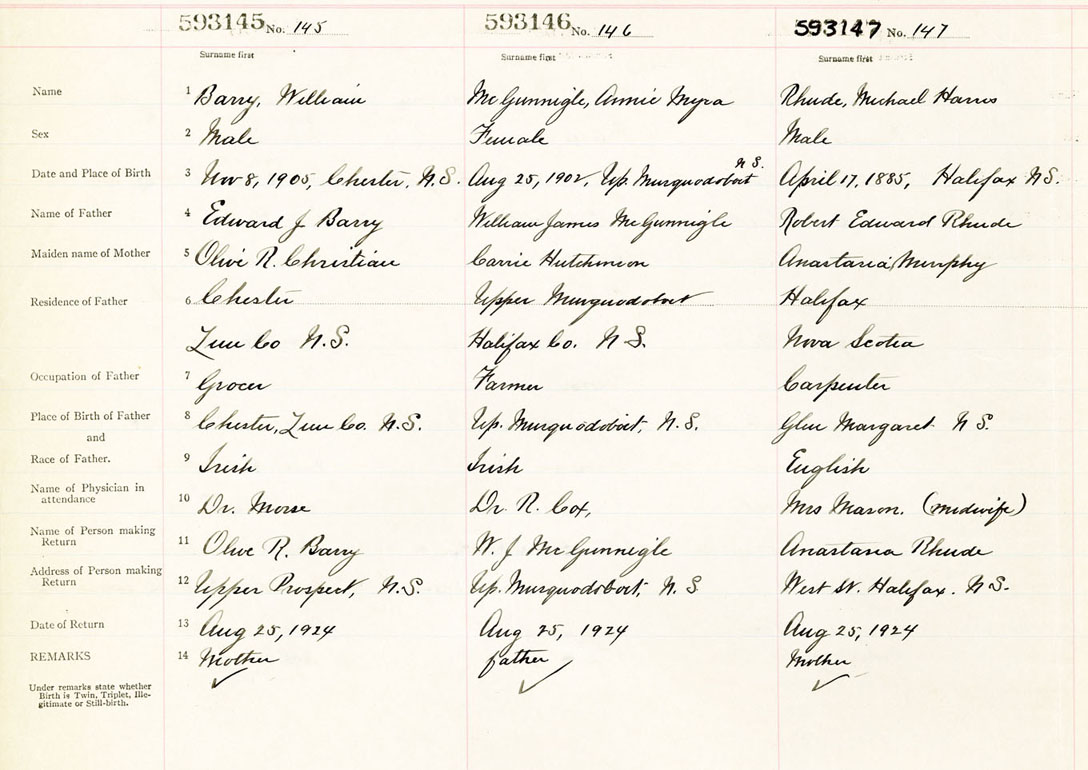 593145 No. 145 593146 No. 146 593147 No. 147
Surname first Surname first Surname first
Name 1 Barry, William McGunnigle, Annie Myra Rhude, Michael Harris
Sex 2 Male Female Male
N S.
Date and Place of Birth 3 Nov 8, 1905, Chester, N.S. Aug 25, 1902, Up. Musquodoboit April 17, 1885, Halifax N S.
Name of Father 4 Edward J Barry William James McGunnigle Robert Edward Rhude
Maiden name of Mother 5 Olive R. Christian Carrie Hutchinson Anastasia Murphy
Residence of Father 6 Chester Upper Musquodoboit Halifax
Lun Co N.S. Halifax Co. N S. Nova Scotia
Occupation of Father 7 Grocer Farmer Carpenter
Place of Birth of Father 8 Chester, Lun Co. N.S. Up. Musquodoboit, N.S. Glen Margaret N S.
and
Race of Father. 9 Irish Irish English
Name of Physician in
attendance 10 Dr. Morse Dr R. Cox, Mrs Mason. (midwife)
Name of Person making
Return 11 Olive R. Barry W. J McGunnigle Anastasia Rhude
Address of Person making
Return 12 Upper Prospect, N.S. Up. Musquodoboit, N. S West St. Halifax. N S.
Date of Return 13 Aug 25, 1924 Aug 25, 1924 Aug 25, 1924
REMARKS 14 Mother father Mother
Under remarks state whether
Birth is Twin, Triplet, Ille-
gitimate or Still-birth.